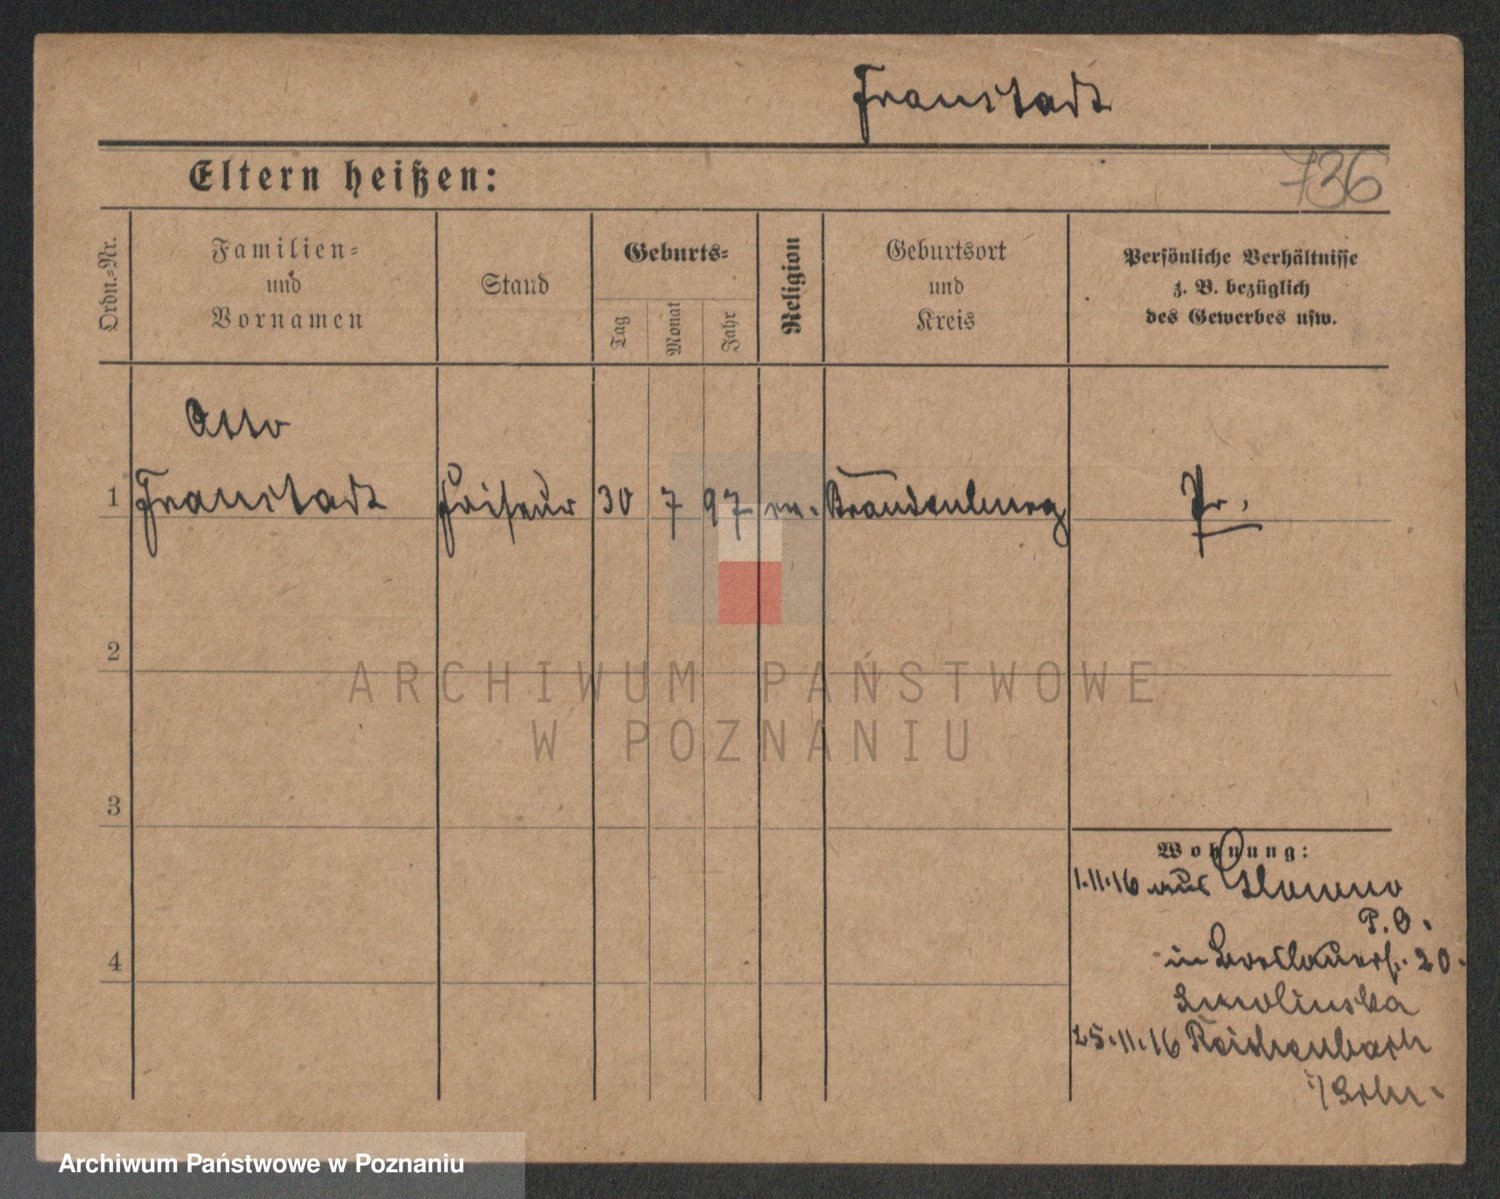 Fraustadt
Eltern heißen:
736
Ordn.-Nr.
Familien-
und
Vornamen
Stand
Geburts-
Tag
Monat
Jahr
Religion
Geburtsort
und
Kreis
Persönliche Verhältnisse
z. B. bezüglich
des Gewerbes usw.
Otto
1 Fraustadt Friseur 30 7 97 ev. Brandenburg Pr.
2
3
4
Wohnung:
1.11.16 aus
P. O.
in Breslauerstr. 20.
Smolinska
25.11.16 Reichenbach
i/Schl.
ARCHIWUM PAŃSTWOWE
W POZNANIU
Archiwum Państwowe w Poznaniu